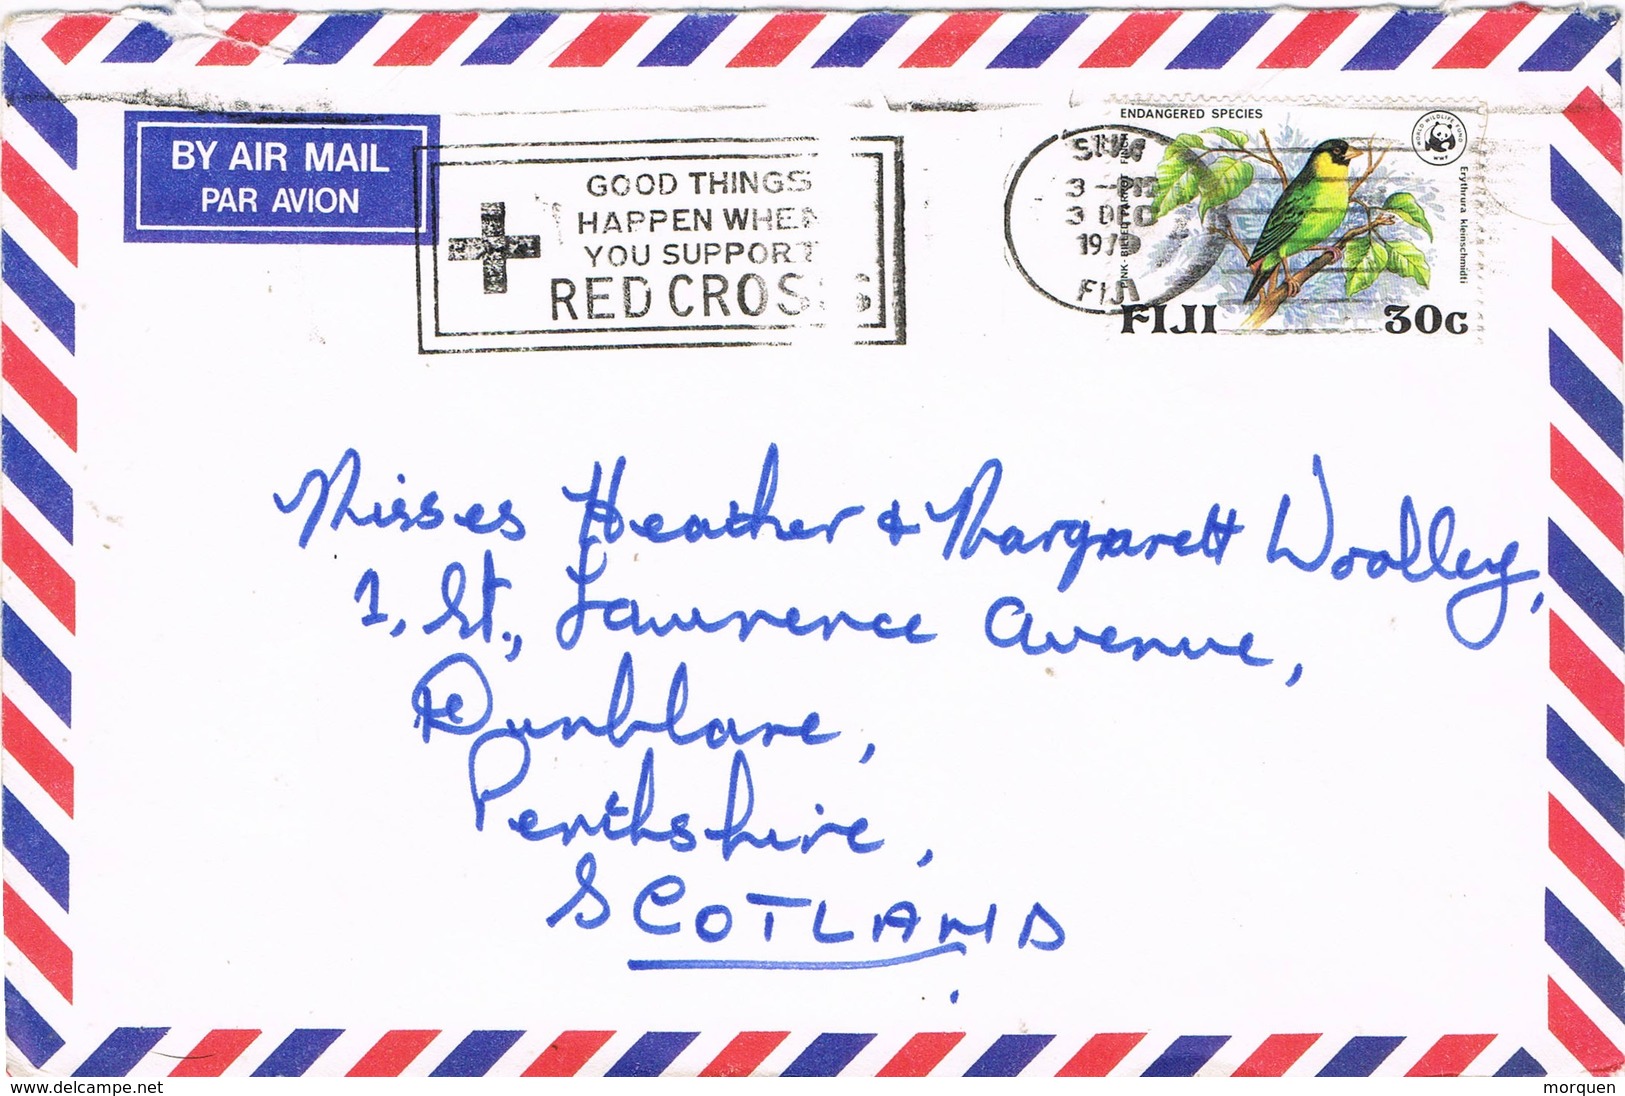 BY AIR MAIL
PAR AVION
GOOD THINGS
HAPPEN WHEN
YOU SUPPORT
RED CROSS
SUVA
3 DEC
FIJI
ENDANGERED SPECIES
WORLD WILDLIFE FUND
WWF
Erythrura kleinschmidti
PINK-BILLED PARROT FINCH
FIJI 30c
Misses Heather & Margarett Woolley,
1, St., Lawrence Avenue,
Dunblane,
Perthshire,
SCOTLAND.
www.delcampe.net
morquen